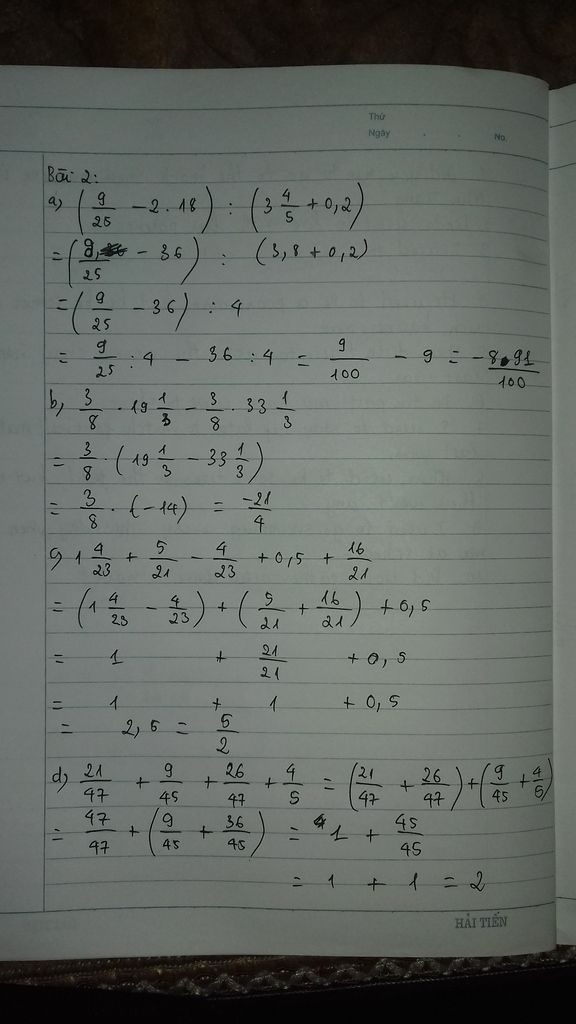 Thứ
Ngày . . No.
Bài 2:
a) (9/25 - 2 . 18) : (3 4/5 + 0,2)
= (9/25 - 36) : (3,8 + 0,2)
= (9/25 - 36) : 4
= 9/25 : 4 - 36 : 4 = 9/100 - 9 = -891/100
b) 3/8 . 19 1/3 - 3/8 . 33 1/3
= 3/8 . (19 1/3 - 33 1/3)
= 3/8 . (-14) = -21/4
c) 1 4/23 + 5/21 - 4/23 + 0,5 + 16/21
= (1 4/23 - 4/23) + (5/21 + 16/21) + 0,5
= 1 + 21/21 + 0,5
= 1 + 1 + 0,5
= 2,5 = 5/2
d) 21/47 + 9/45 + 26/47 + 4/5 = (21/47 + 26/47) + (9/45 + 4/5)
= 47/47 + (9/45 + 36/45) = 1 + 45/45
= 1 + 1 = 2
HẢI TIẾN